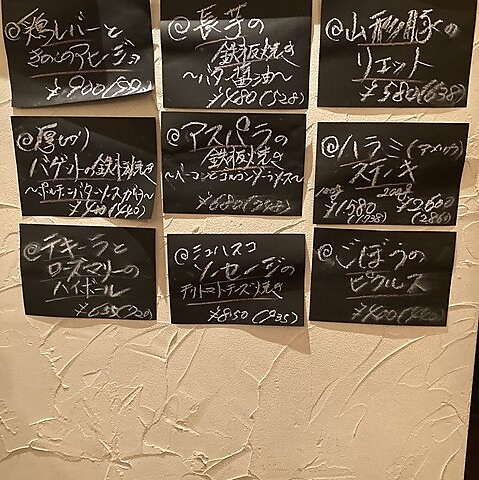 @鶏レバーと
きのこのアヒージョ
¥900(990)
@長芋の
鉄板焼き
〜バター醤油〜
¥480(528)
@山形豚の
リエット
¥580(638)
@厚切り
バゲットの鉄板焼き
¥400(440)
@アスパラの
鉄板焼き
〜ベーコンとゴルゴンゾーラソース〜
¥680(748)
@ハラミ(アメリカ)
ステーキ
100g 200g
¥1580 ¥2600
(1738) (2860)
@テキーラと
ローズマリーの
ハイボール
¥655(720)
@シュハスコ
ソーセージの
チーズ焼き
¥850(935)
@ごぼうの
ピクルス
¥400(440)